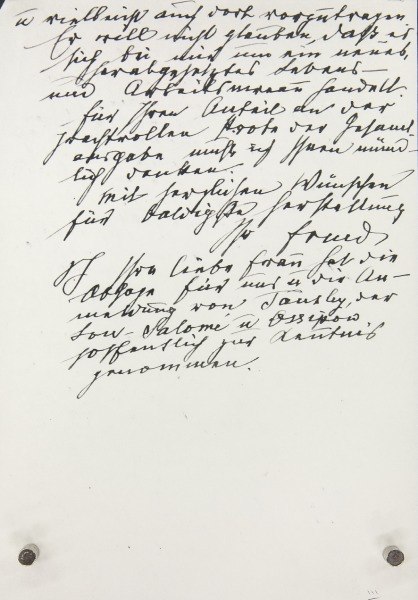 u vielleicht auch dort vorzutragen
Er will nicht glauben, daß es
sich bei mir um ein neues,
herabgesetztes Lebens-
und Arbeitsniveau handelt.
für Ihren Anteil an der
prachtvollen Note der Gesamt
ausgabe muß ich Ihnen münd-
lich danken.
Mit herzlichen Wünschen
für baldigste Herstellung
Ihr Freud
Ihre liebe Frau hat die
Absage für uns u die An-
meldung von Tansley, der
Lou-Salomé u Ossipow
hoffentlich zur Kenntnis
genommen.